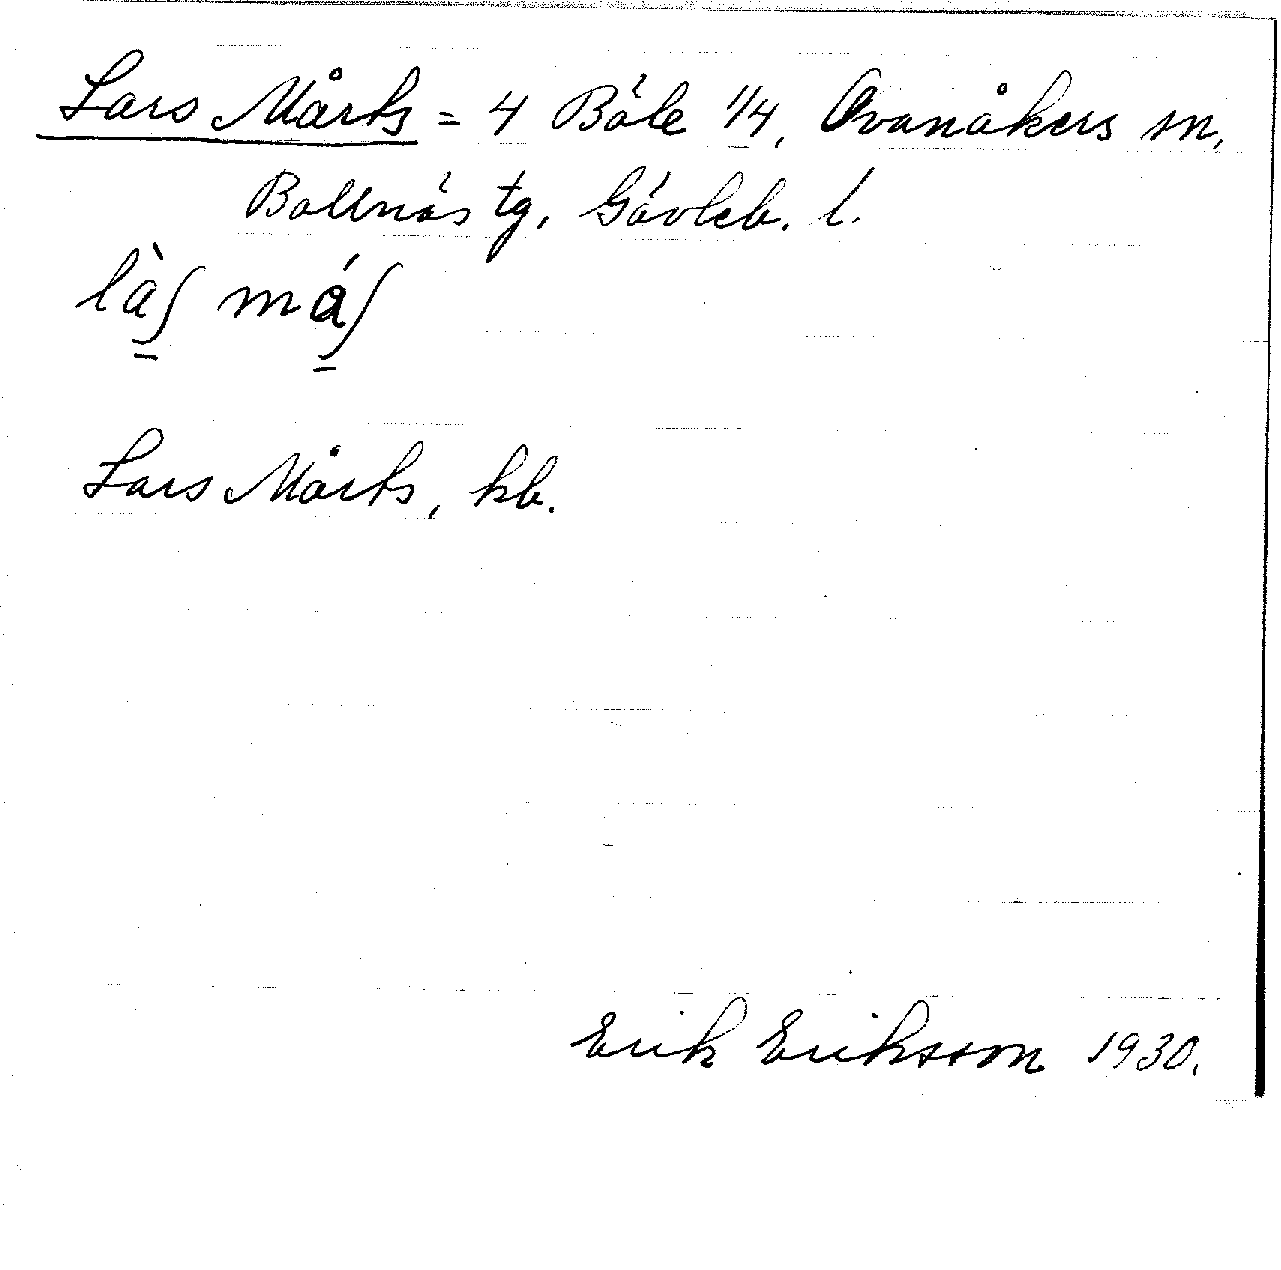 Lars Mårts = 4 Böle 1/4, Ovanåkers sn,
Bollnäs tg, Gävleb. l.
làʃ máʃ
Lars Mårts, kb.
Erik Eriksson 1930.